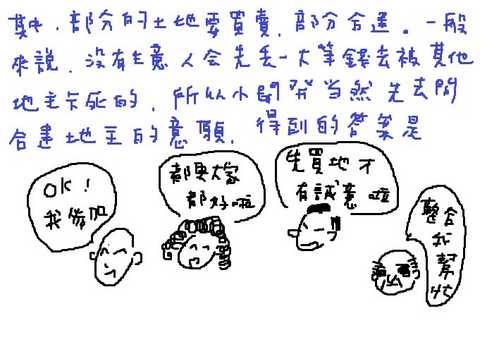 其中，部分的土地要買賣，部分合建。一般
來說，沒有生意人會先丟一大筆錢去被其他
地主卡死的，所以小開發當然先去問
合建地主的意願，得到的答案是
OK！
我參加
都更大家
都好啦
先買地才
有誠意啦
整合
我
幫
忙